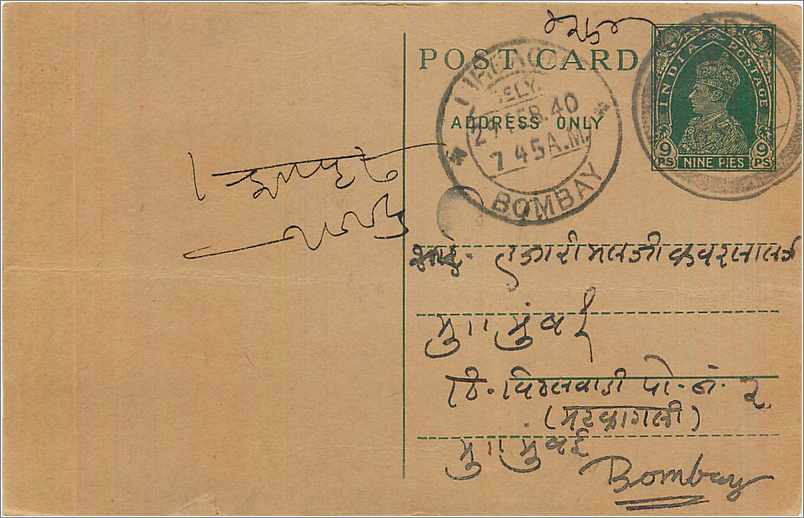 POST CARD
ADDRESS ONLY
INDIA POSTAGE
9 PS NINE PIES 9 PS
DELY.
29 FEB. 40
7 45 A.M.
BOMBAY
भाई हजारीमलजी कवरलालजी
मु॥ मुंबई
ठि. विठलवाडी पो. नं. २
(मरकागली)
मु॥ मुंबई
Bombay